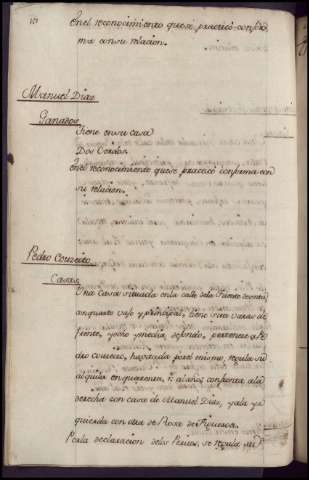 En el reconocimiento que se practicó confor
ma con su relacion.
Manuel Dias
Ganados
Tiene en su casa
Dos Cerdos.
En el reconocimiento que se practicó conforma con
su relacion.
Pedro Couceiro
Casas
Una Casa situada en la calle de la Fuente
un quarto vajo, y principal, tiene siete varas de
frente, y ocho y media de fondo, pertenece a Pe
dro Couceiro, havitada por el mismo, regula su
alquiler en quarenta, rs al año: confronta a la
derecha con casa de Manuel Dias, y a la iz
quierda con otra de Rosa de Figueroa.
Por la declaracion de los Peritos, se regula su